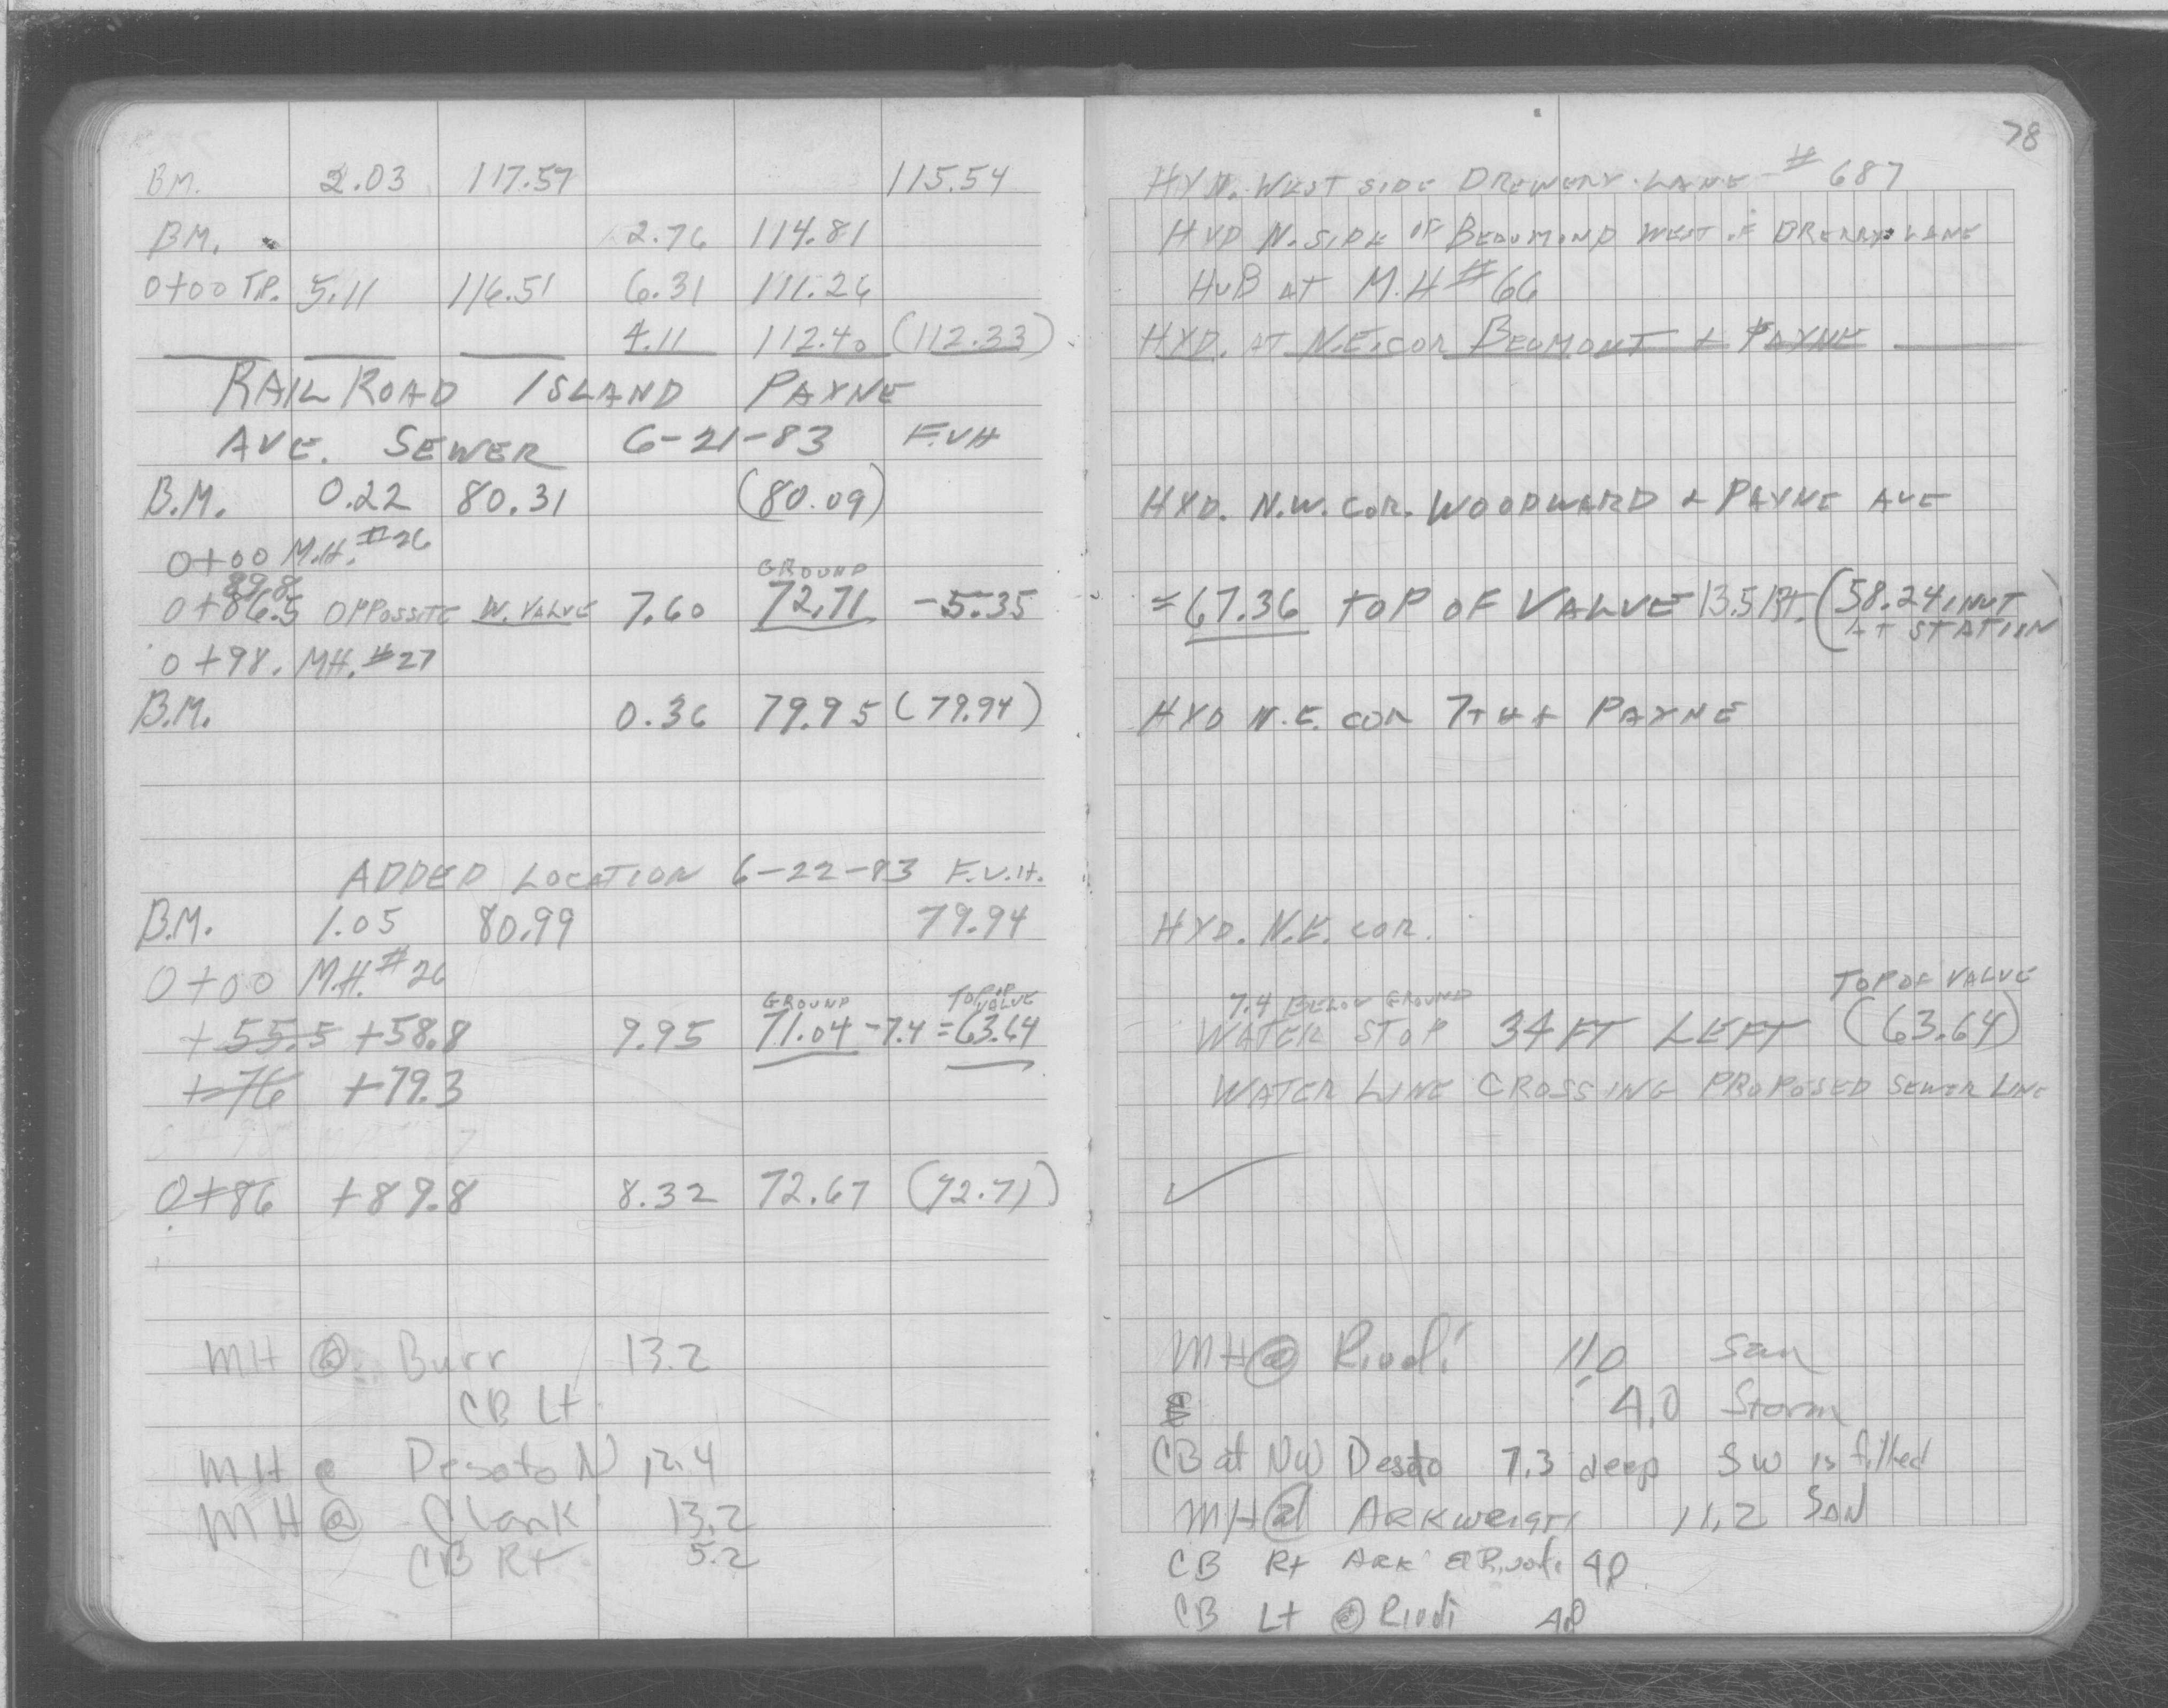 78
BM. 2.03 117.57 115.54
BM. 2.76 114.81
0+00 T.P. 5.11 116.51 6.31 111.26
4.11 112.40 (112.33)
RAILROAD ISLAND PAYNE
AVE. SEWER 6-21-83 F.V.H
B.M. 0.22 80.31 (80.09)
0+00 M.H. #26
89.8 GROUND
0+86.5 OPPOSSITE W. VALVE 7.60 72.71 -5.35
0+98. MH. #27
B.M. 0.36 79.95 (79.94)
ADDED LOCATION 6-22-83 F.V.H.
B.M. 1.05 80.99 79.94
0+00 M.H. #26
GROUND TOP OF VALVE
+55.5 +58.8 9.95 71.04 -7.4 = 63.64
+76 +79.3
0+86 +89.8 8.32 72.67 (72.71)
MH @ Burr 13.2
CB Lt
MH @ Desoto N 12.4
MH @ Clark 13.2
CB Rt 5.2
HYD. WEST SIDE DREWERY LANE #687
HYD N. SIDE OF BEAUMOND WEST OF DRERRY LANE
HUB AT M.H #66
HYD. AT N.E. COR BEUMONT + PAYNE
HYD. N.W. COR. WOODWARD + PAYNE AVE
= 67.36 TOP OF VALVE 13.5 Rt. (58.24 INVT
AT STATION)
HYD N.E. COR 7TH + PAYNE
HYD. N.E. COR.
7.4 BELOW GROUND TOP OF VALVE
WATER STOP 34 FT LEFT (63.64)
WATER LINE CROSSING PROPOSED SEWER LINE
MH @ Rivoli 11.0 San
4.0 Storm
CB at NW Desoto 7.3 deep SW is filled
MH @ ARKWRIGHT 11.2 SAN
CB Rt ARK @ Rivoli 4.0
CB Lt @ Rivoli 4.0